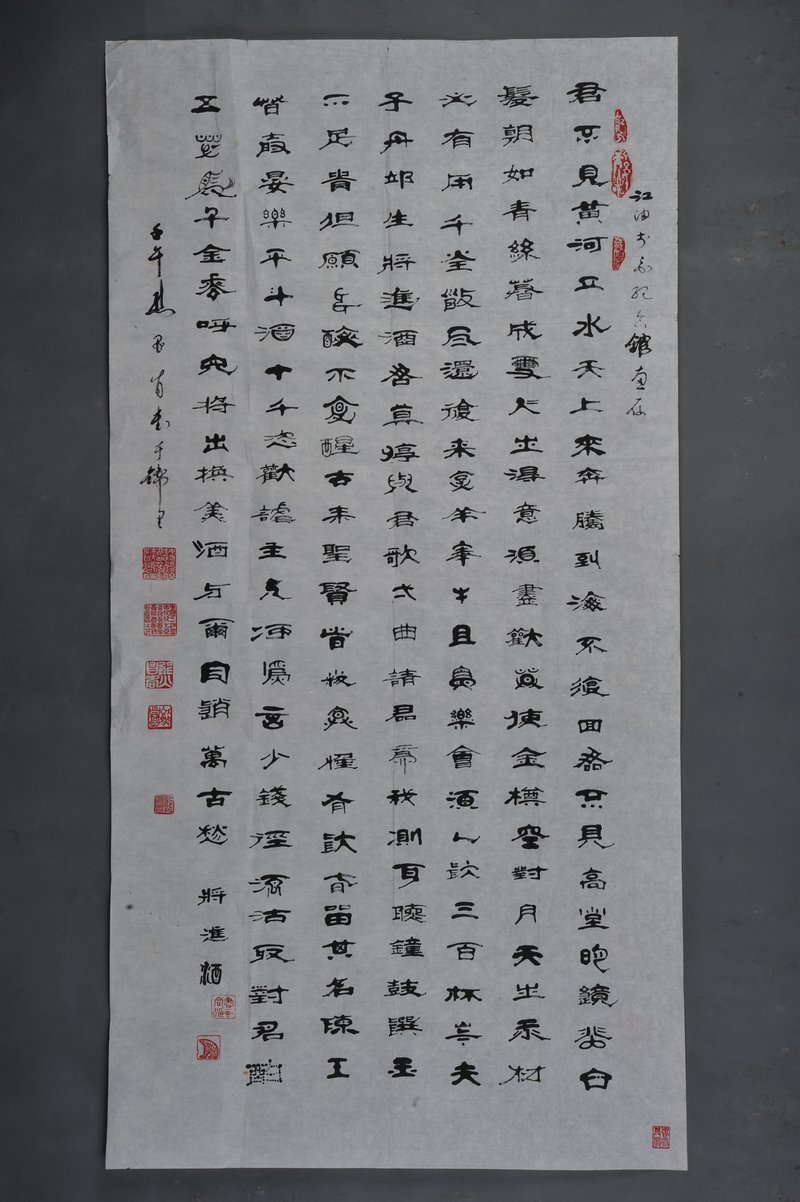 江油李白紀念館惠存
君不見黃河之水天上來奔騰到海不復回君不見高堂明鏡悲白
髮朝如青絲暮成雪人生得意須盡歡莫使金樽空對月天生吾材
必有用千金散盡還復來烹羊宰牛且為樂會須一飲三百杯岑夫
子丹邱生將進酒君莫停與君歌一曲請君為我測耳聽鐘鼓饌玉
不足貴但願長醉不復醒古來聖賢皆寂寞惟有飲者留其名陳王
昔時宴樂平斗酒十千恣歡謔主人何為言少錢徑須沽取對君酌
五花馬千金裘呼兒將出換美酒与爾同銷萬古愁 將進酒
壬午書于錦里